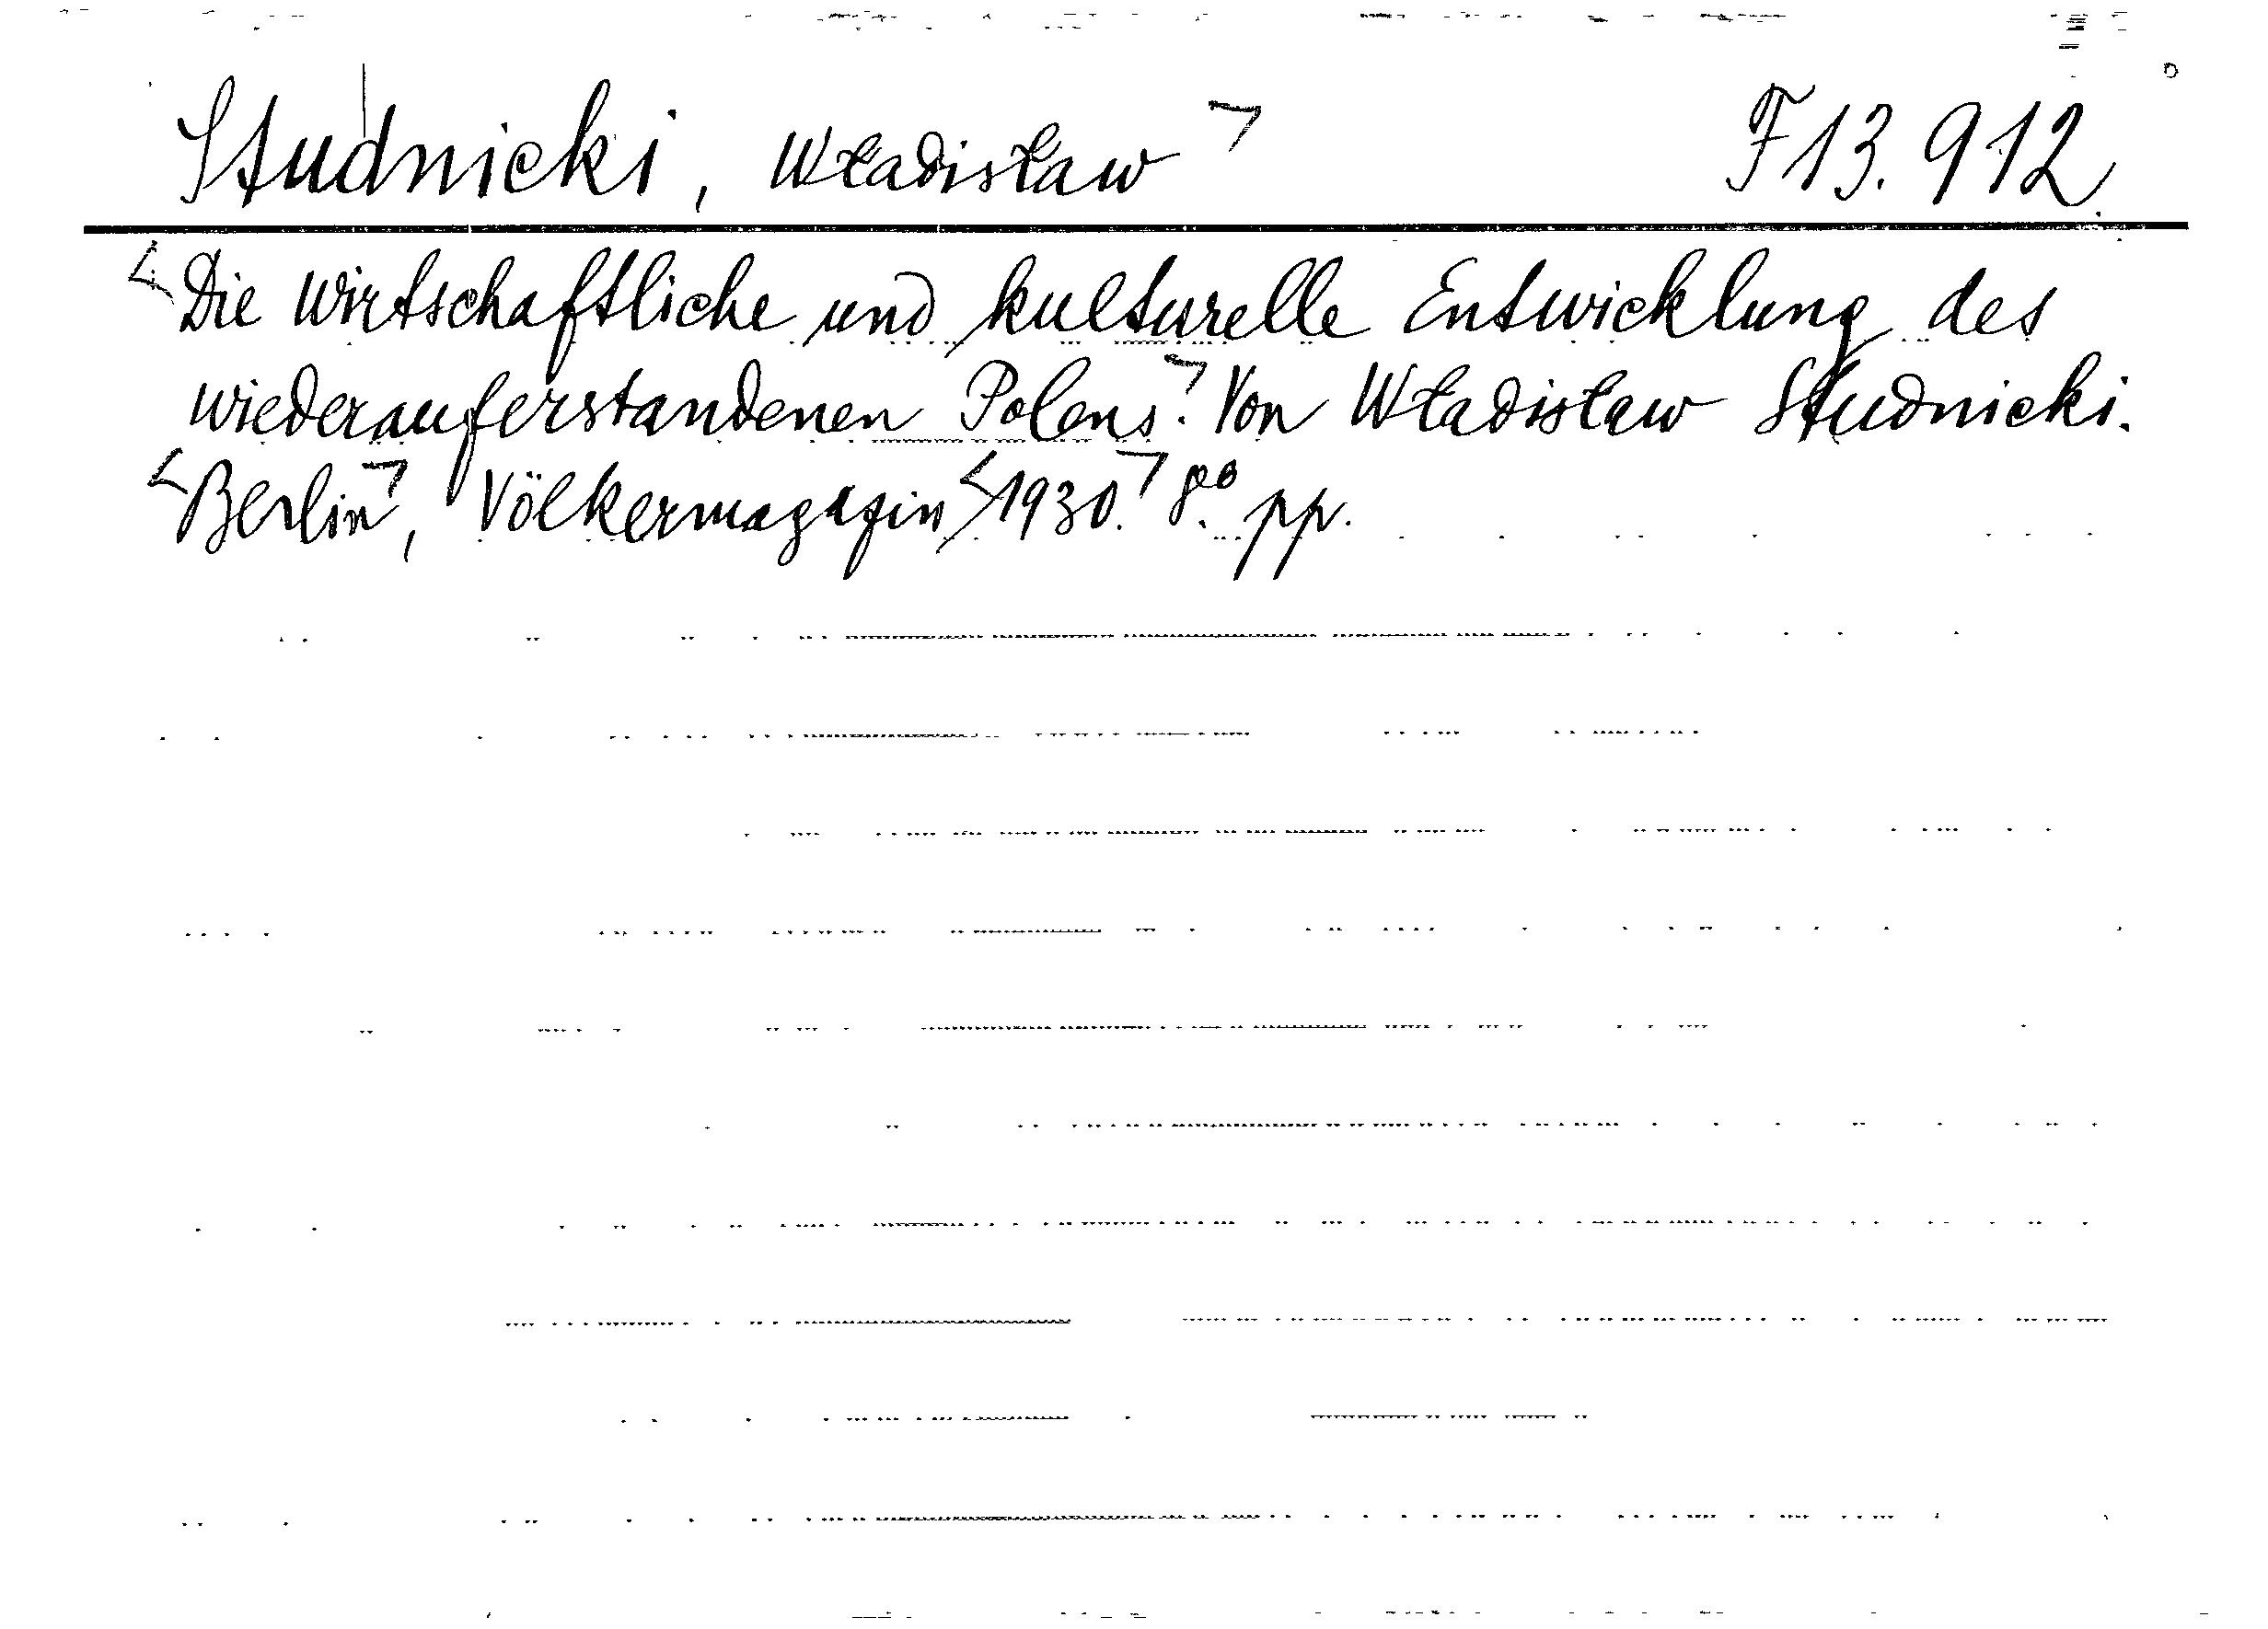 Studnicki, Władisław F 13.912
Die wirtschaftliche und kulturelle Entwicklung des
wiederauferstandenen Polens. Von Władisław Studnicki.
Berlin, Völkermagazin 1930. 8° pp.